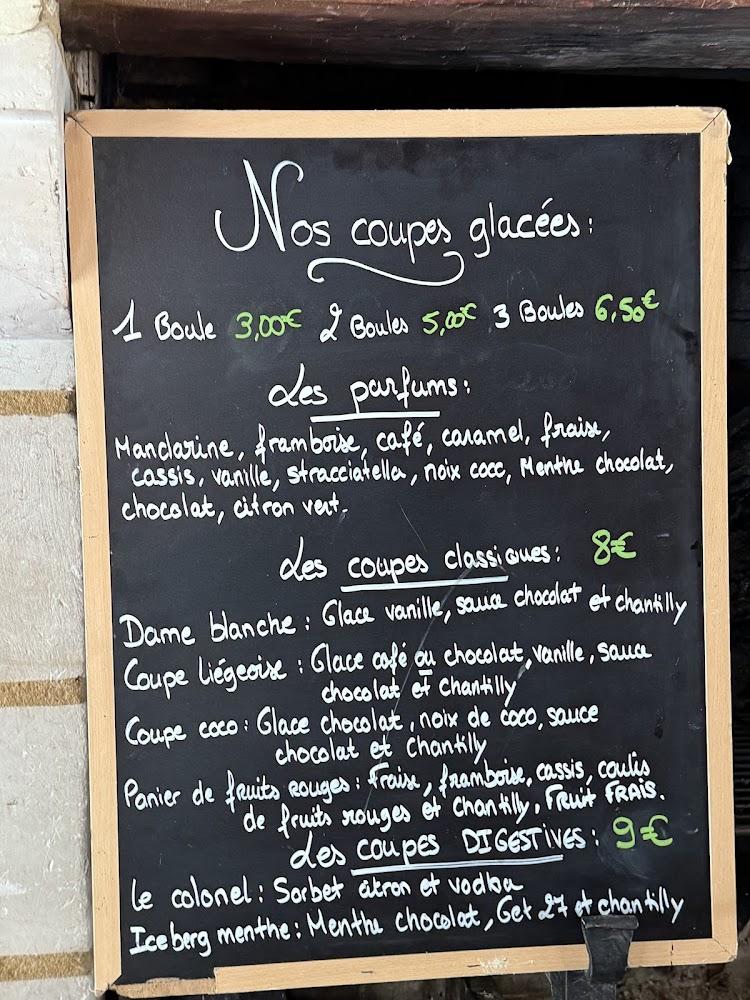 Nos coupes glacées:
1 Boule 3,00€ 2 Boules 5,00€ 3 Boules 6,50€
Les parfums:
Mandarine, framboise, café, caramel, fraise,
cassis, vanille, stracciatella, noix coco, Menthe chocolat,
chocolat, citron vert.
Les coupes classiques: 8€
Dame blanche: Glace vanille, sauce chocolat et chantilly
Coupe liégeoise: Glace café ou chocolat, vanille, sauce
chocolat et Chantilly
Coupe coco: Glace chocolat, noix de coco, sauce
chocolat et Chantilly
Panier de fruits rouges: Fraise, framboise, cassis, coulis
de fruits rouges et Chantilly, FRUIT FRAIS.
Les coupes DIGESTIVES: 9€
Le colonel: Sorbet citron et vodka
Iceberg menthe: Menthe chocolat, Get 27 et chantilly